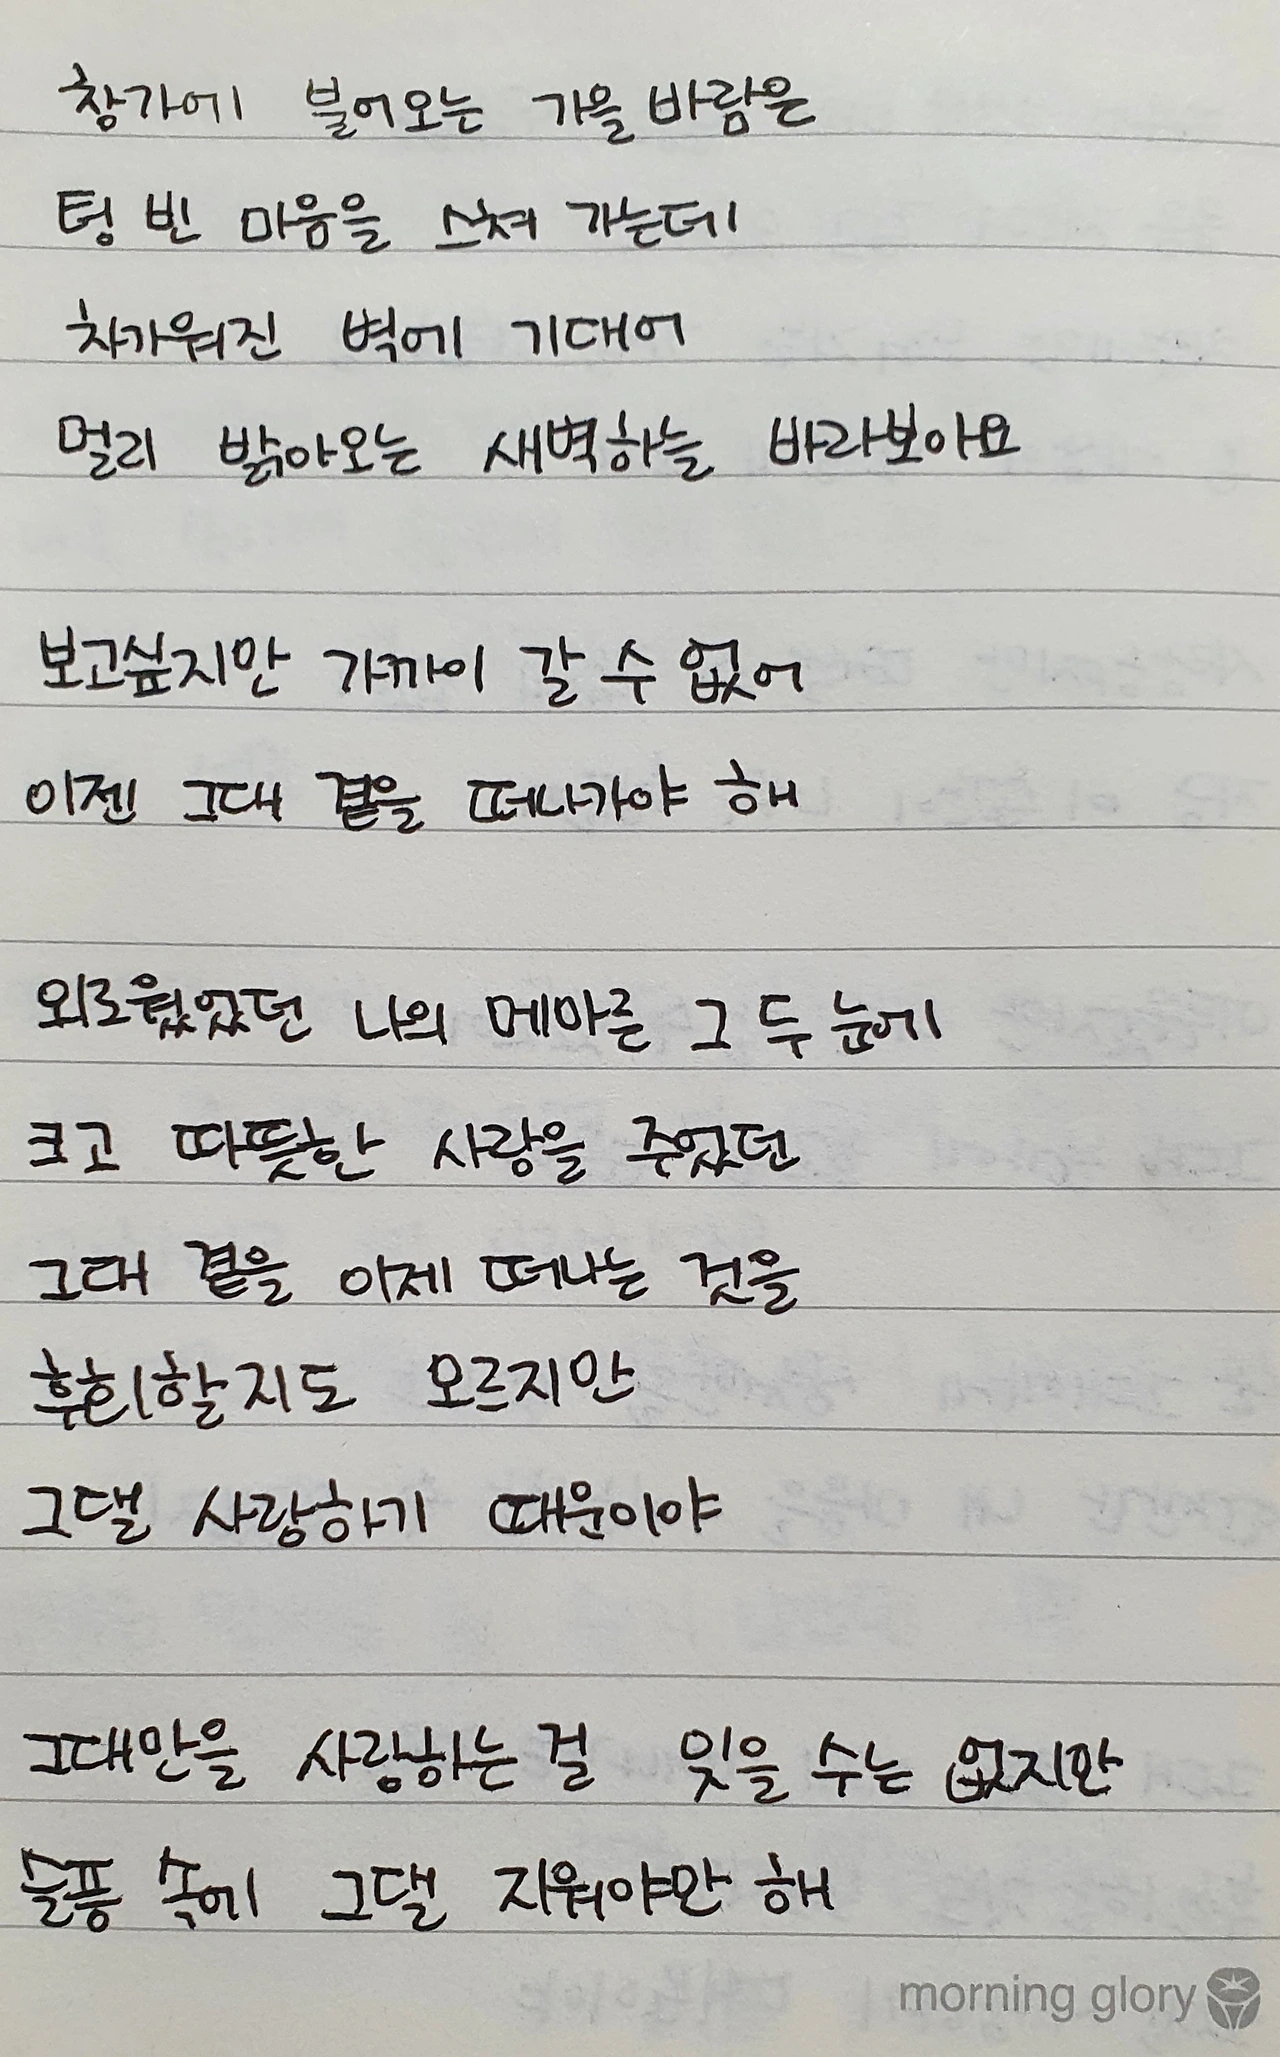 창가에 불어오는 가을 바람은
텅 빈 마음을 스쳐 가는데
차가워진 벽에 기대어
멀리 밝아오는 새벽하늘 바라보아요
보고싶지만 가까이 갈 수 없어
이젠 그대 곁을 떠나가야 해
외로웠었던 나의 메마른 그 두 눈에
크고 따뜻한 사랑을 주었던
그대 곁을 이제 떠나는 것을
후회할지도 모르지만
그댈 사랑하기 때문이야
그대만을 사랑하는 걸 잊을 수는 없지만
슬픔 속에 그댈 지워야만 해
morning glory